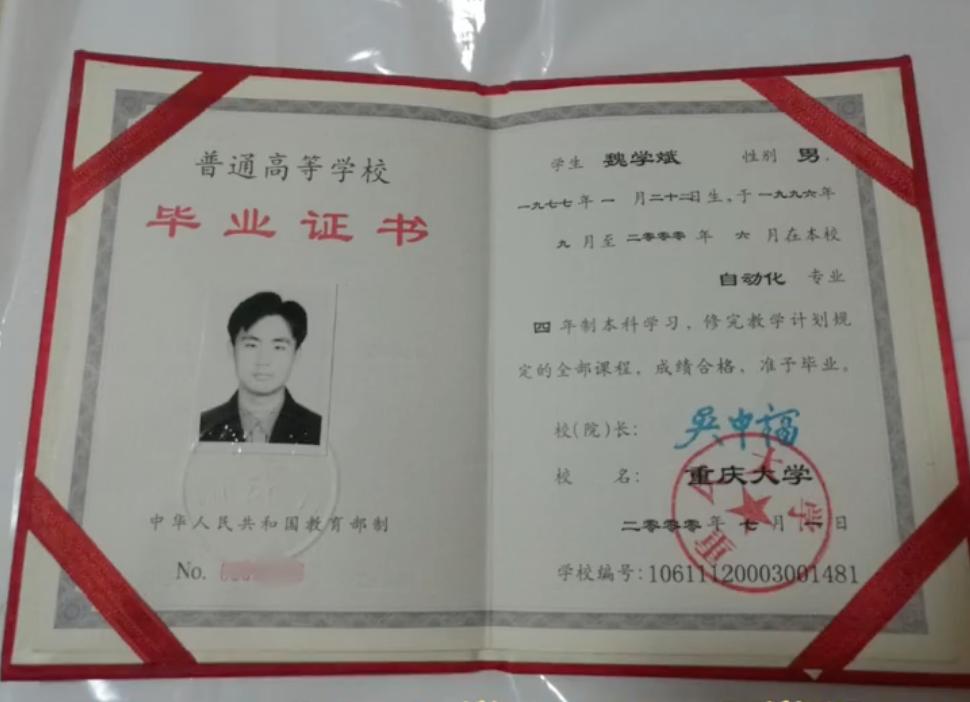 普通高等学校
毕业证书
中华人民共和国教育部制
No.
学生 魏学斌 性别 男，
一九七七年 一 月二十二日生，于一九九六年
九 月至 二零零零 年 六 月在本校
自动化 专业
四 年制本科学习，修完教学计划规
定的全部课程，成绩合格，准予毕业。
校(院)长：吴中福
校 名：重庆大学
二零零零年 七 月 一 日
学校编号：10611120003001481